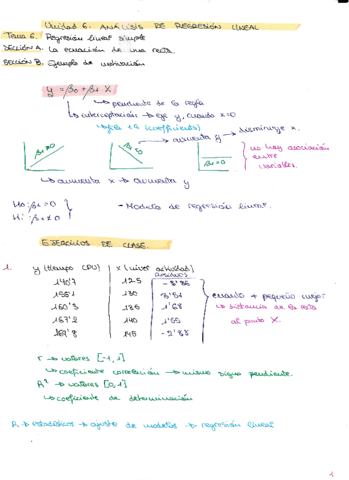 Unidad 6. ANÁLISIS DE REGRESIÓN LINEAL
Tema 6. Regresión lineal simple
SECCIÓN A. La ecuación de una recta.
SECCIÓN B. Ejemplo de motivación
y = β0 + β1 X
↳ pendiente de la regla
↳ interceptación → eje y, cuando x=0
β0 y β1 (coeficientes)
→ aumenta y → disminuye x.
β1>0
β1<0
β1=0
no hay asociación entre variables.
↳ aumenta x → aumenta y
H0: β1 = 0
H1: β1 ≠ 0
- Modelo de regresión lineal.
EJERCICIOS DE CLASE.
1. y (tiempo CPU) x (nivel actividad) Residuos
140'7 125 -8'86
155'1 130
160'3 135 1'68
167'2 140 1'55
169'8 145 -2'88
cuando + pequeño mejor
↳ distancia de la recta al punto X.
r → valores [-1, 1]
↳ coeficiente correlación → mismo signo pendiente.
R² → valores [0, 1]
↳ coeficiente de determinación
R → estadísticos → ajuste de modelos → regresión lineal
1